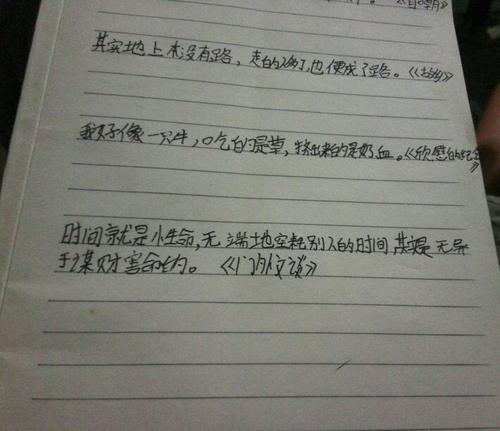 《自嘲》
其实地上本没有路，走的人多了，也便成了路。《故乡》
我好像一只牛，口吃的是草，挤出来的是奶血。《欣慰的纪念》
时间就是小生命，无端地空耗别人的时间，其实是无异
于谋财害命的。《门外文谈》